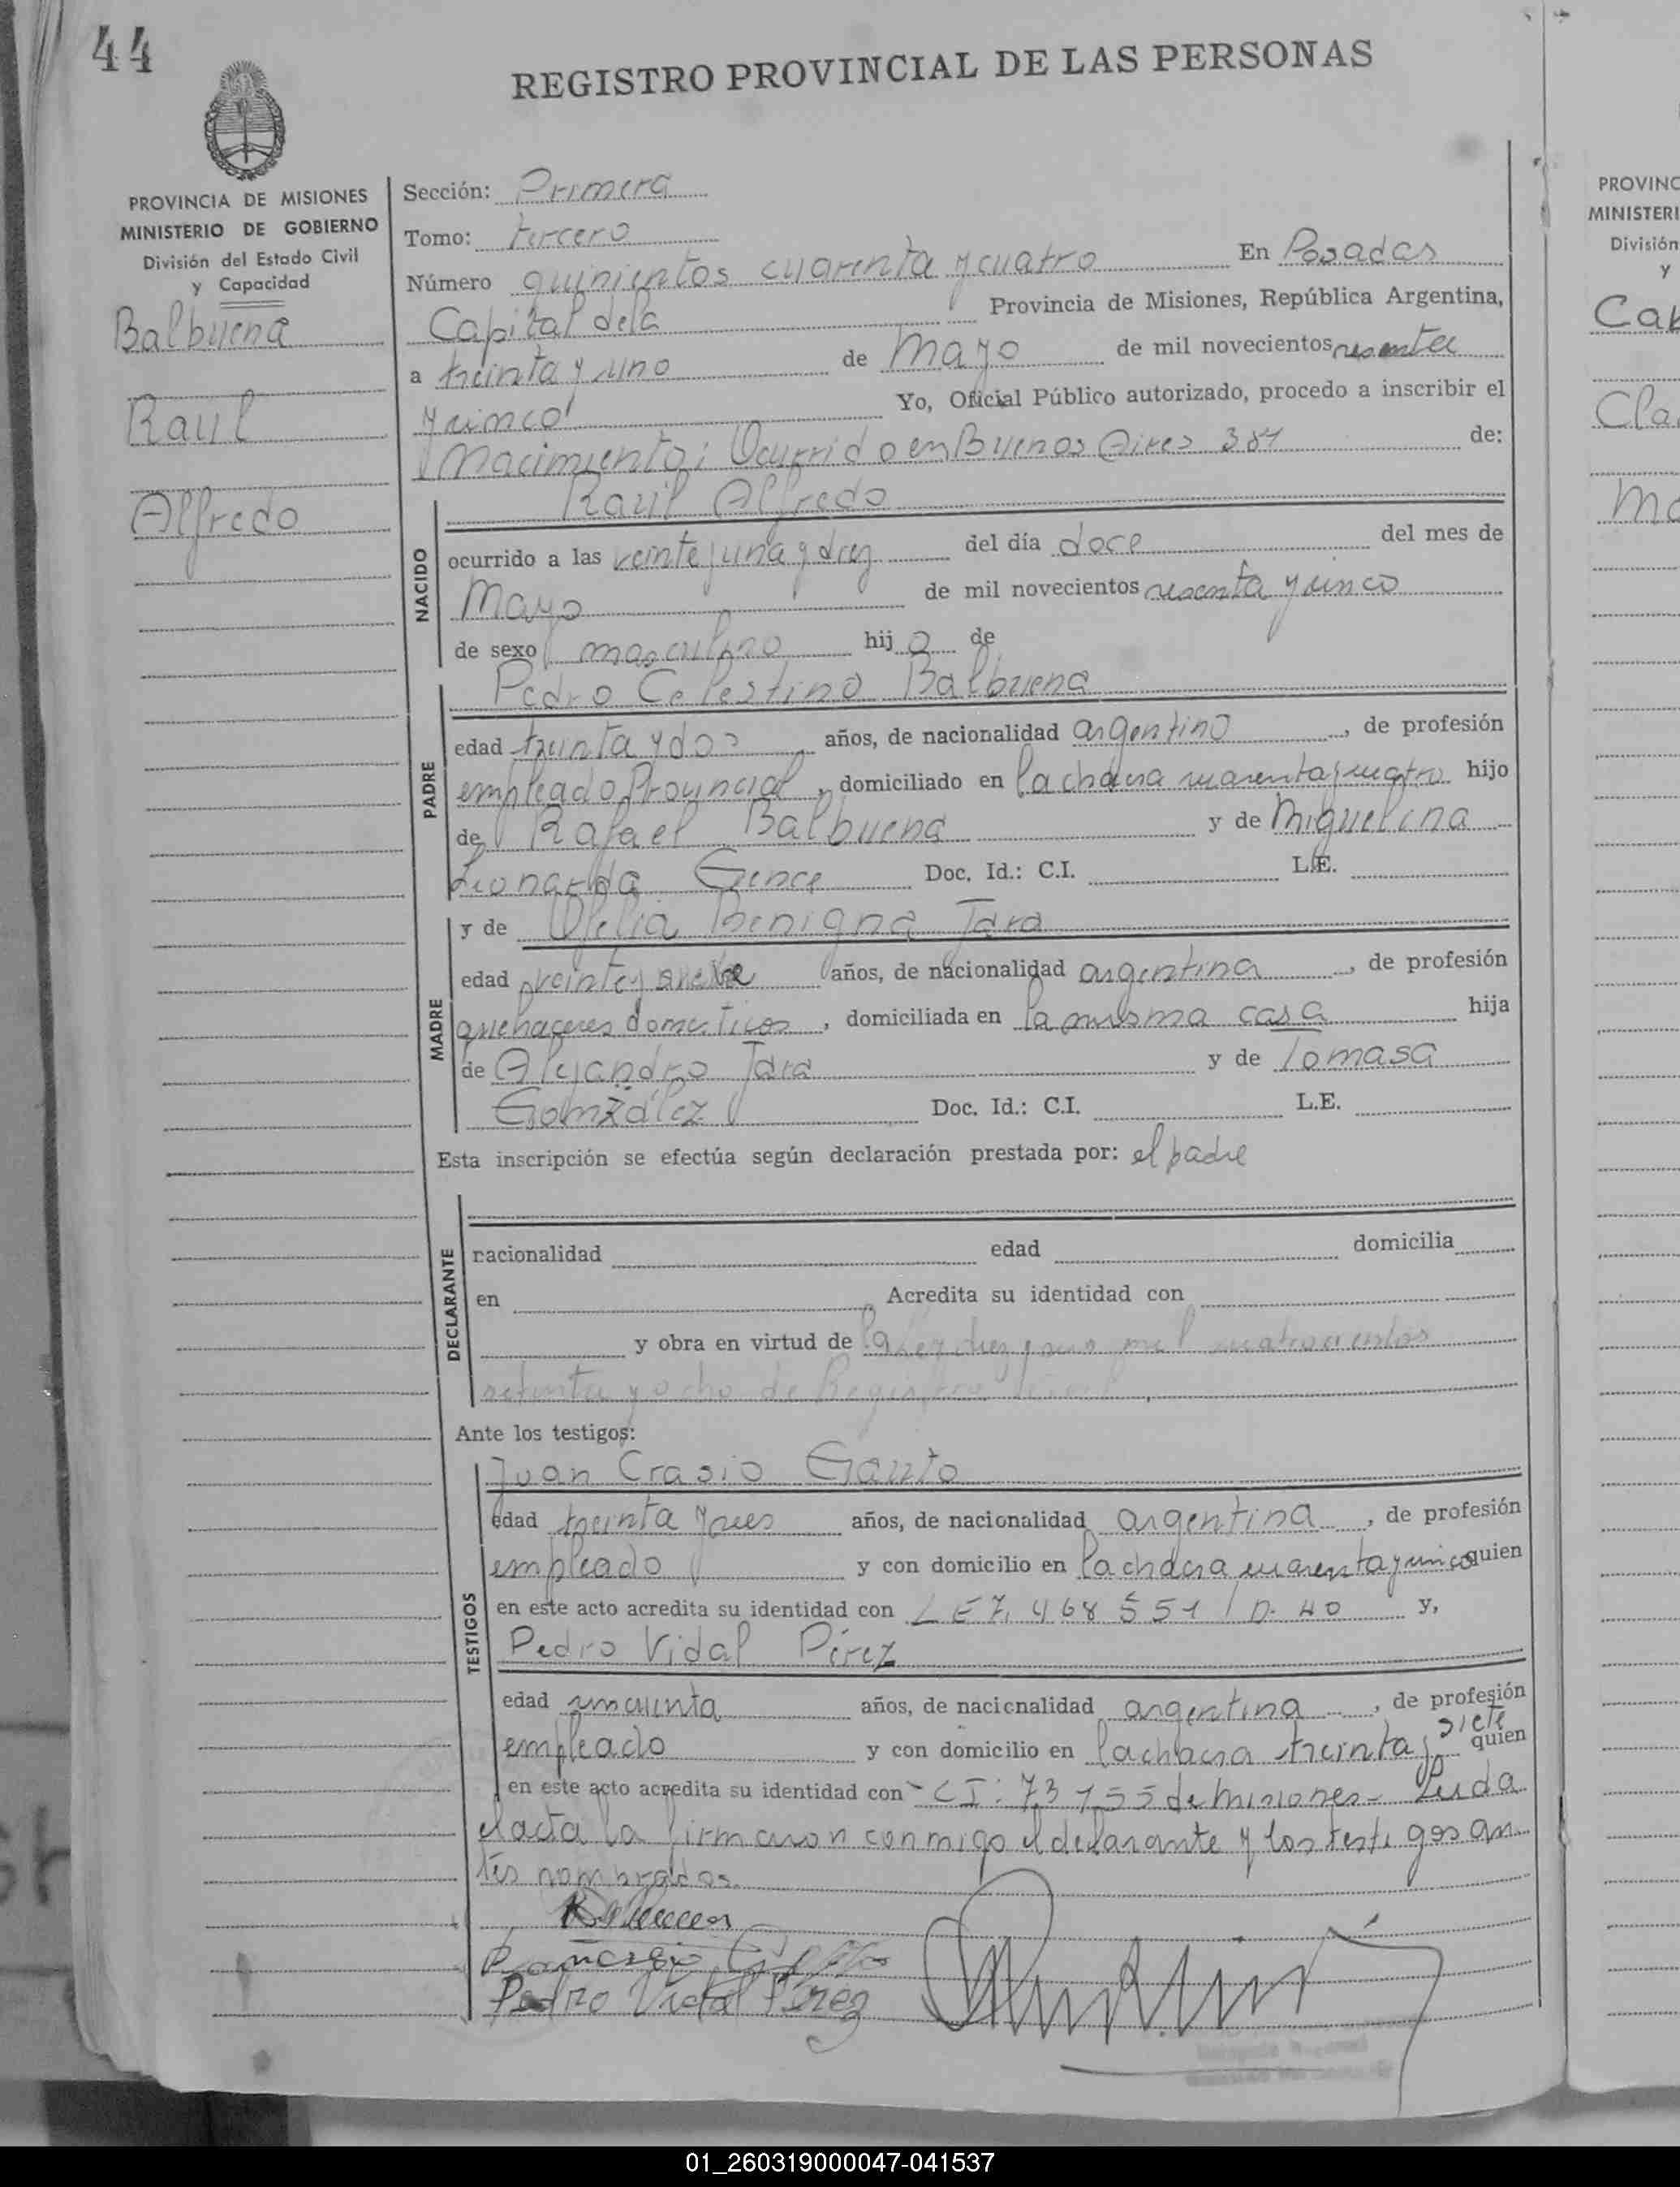 44
REGISTRO PROVINCIAL DE LAS PERSONAS
PROVINCIA DE MISIONES
MINISTERIO DE GOBIERNO
División del Estado Civil
y Capacidad
Balbuena
Raul
Alfredo
Sección: Primera
Tomo: tercero
Número quinientos cuarenta y cuatro En Posadas
Capital dela Provincia de Misiones, República Argentina,
a treinta y uno de Mayo de mil novecientos sesenta
y cinco Yo, Oficial Público autorizado, procedo a inscribir el
Nacimiento; Ocurrido en Buenos Aires 381 de:
NACIDO
Raúl Alfredo
ocurrido a las veinte y una y diez del día doce del mes de
Mayo de mil novecientos sesenta y cinco
de sexo masculino hijo de
PADRE
Pedro Celestino Balbuena
edad treinta y dos años, de nacionalidad argentino, de profesión
empleado Provincial, domiciliado en la chacra cuarenta y cuatro hijo
de Rafael Balbuena y de Miguelina
Leonarda Gence Doc. Id.: C.I. L.E.
MADRE
y de Ofelia Benigna Jara
edad veinte y años, de nacionalidad argentina, de profesión
quehaceres domesticos, domiciliada en la misma casa hija
de Alejandro Jara y de Tomasa
González Doc. Id.: C.I. L.E.
Esta inscripción se efectúa según declaración prestada por: el padre
DECLARANTE
nacionalidad edad domicilia
en Acredita su identidad con
y obra en virtud de la ley diez y seis mil cuatrocientos
setenta y ocho de Registro Civil
Ante los testigos:
TESTIGOS
Juan Crasio Gauto
edad treinta y tres años, de nacionalidad argentina, de profesión
empleado y con domicilio en la chacra cuarenta y cinco quien
en este acto acredita su identidad con L E 7, 468 551 / D. 40 y,
Pedro Vidal Pérez
edad cincuenta años, de nacionalidad argentina, de profesión
empleado y con domicilio en la chacra treinta y siete quien
en este acto acredita su identidad con CI: 73 155 de misiones- Leida
el acta la firmaron conmigo el declarante y los testigos an-
tes nombrados.
Pedro Vidal Pérez
PROVINC
MINISTERI
División
y
Cla
01_260319000047-041537